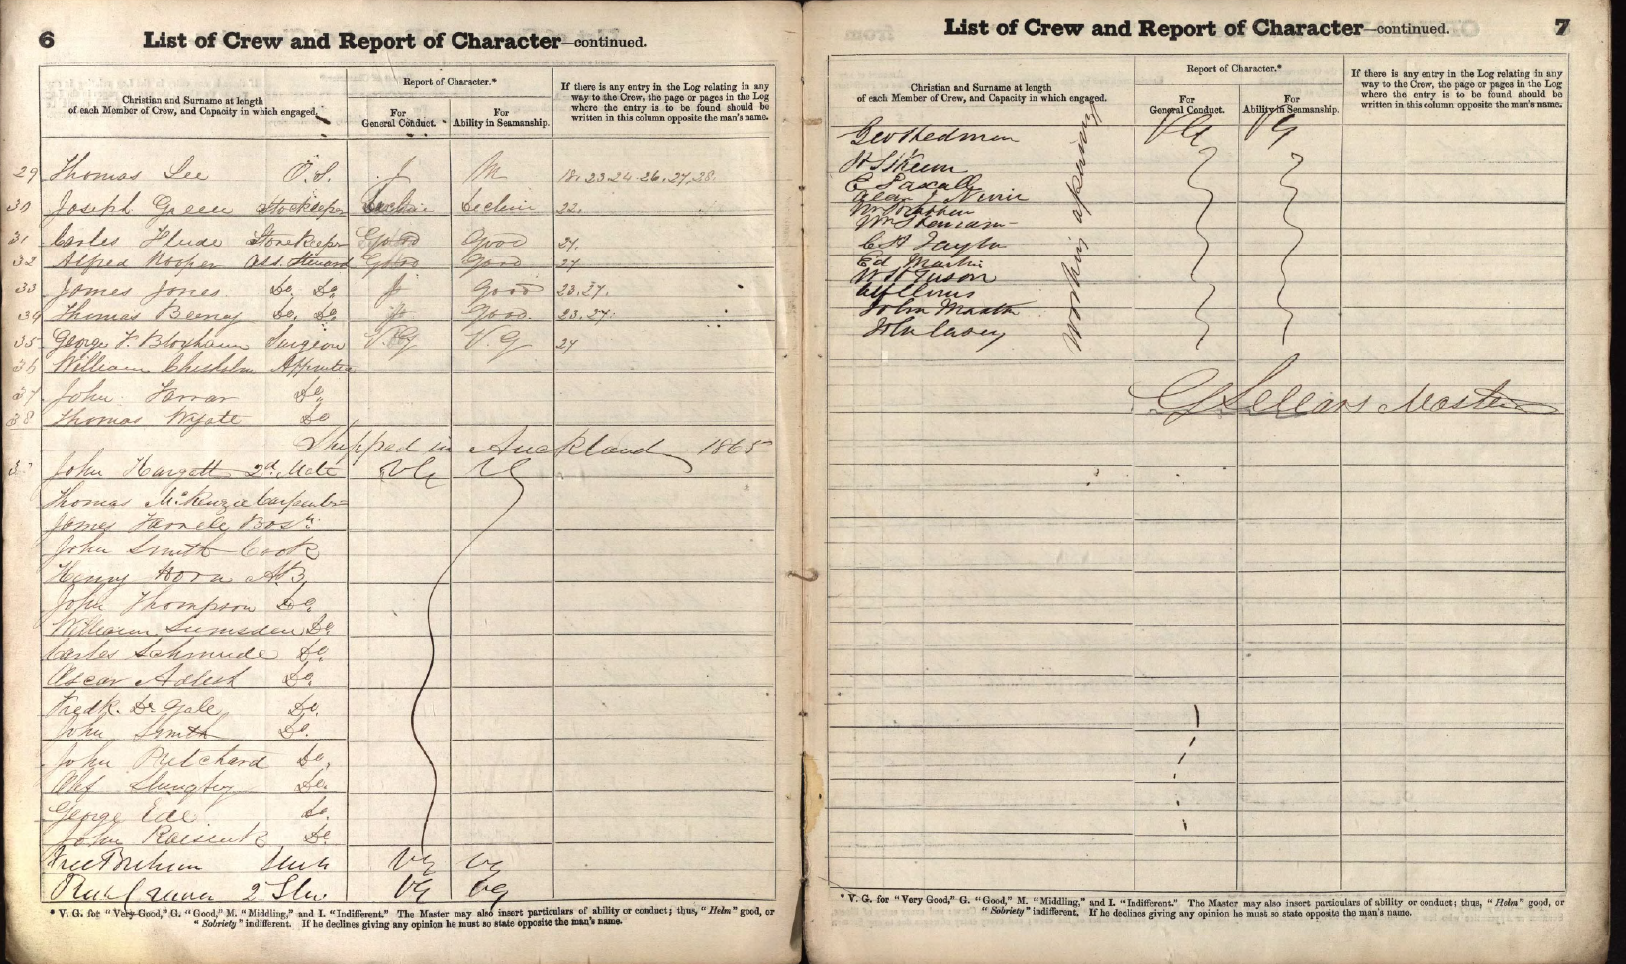 6 List of Crew and Report of Character—continued.
Christian and Surname at length of each Member of Crew, and Capacity in which engaged.
Report of Character.*
For General Conduct.
For Ability in Seamanship.
If there is any entry in the Log relating in any way to the Crew, the page or pages in the Log where the entry is to be found should be written in this column opposite the man's name.
29 Thomas Lee O.S. I M 18. 23. 24. 26. 27. 28.
30 Joseph Green Storekeeper Decline Decline 22.
31 Carles Storekeeper Good Good 27.
32 Alfred Hooper Ass. Steward Good Good 27
33 James Jones Do. Do. Good 23. 27.
34 Thomas Do. Do. Good 23. 27.
35 George F. Bloxham Surgeon V.G V.G 27
36 William Chisholm Apprentice
37 John Farrar Do
38 Thomas Wyate Do
Shipped in Auckland 1865
John Hargett 2d Mate VG VG
Thomas McKenzie Carpenter
James Bosn.
John Smith Cook
Henry Horn AB,
John Thompson Do.
William Lumsden Do
Carles Schmude Do.
Oscar Do.
Fredk. De Gale Do.
John Smith Do.
John Pritchard Do.
Do.
George Ede Do.
John Do
VG VG
2 VG VG
* V. G. for "Very Good," G. "Good," M. "Middling," and I. "Indifferent." The Master may also insert particulars of ability or conduct; thus, "Helm" good, or
"Sobriety" indifferent. If he declines giving any opinion he must so state opposite the man's name.
List of Crew and Report of Character—continued. 7
Christian and Surname at length of each Member of Crew, and Capacity in which engaged.
Report of Character.*
For General Conduct.
For Ability in Seamanship.
If there is any entry in the Log relating in any way to the Crew, the page or pages in the Log where the entry is to be found should be written in this column opposite the man's name.
Geo Stedman VG VG
E Pascall
Nivin
C H Taylor
Ed Martin
John
John Casey
Working
G Sellars Master
* V. G. for "Very Good," G. "Good," M. "Middling," and I. "Indifferent." The Master may also insert particulars of ability or conduct; thus, "Helm" good, or
"Sobriety" indifferent. If he declines giving any opinion he must so state opposite the man's name.